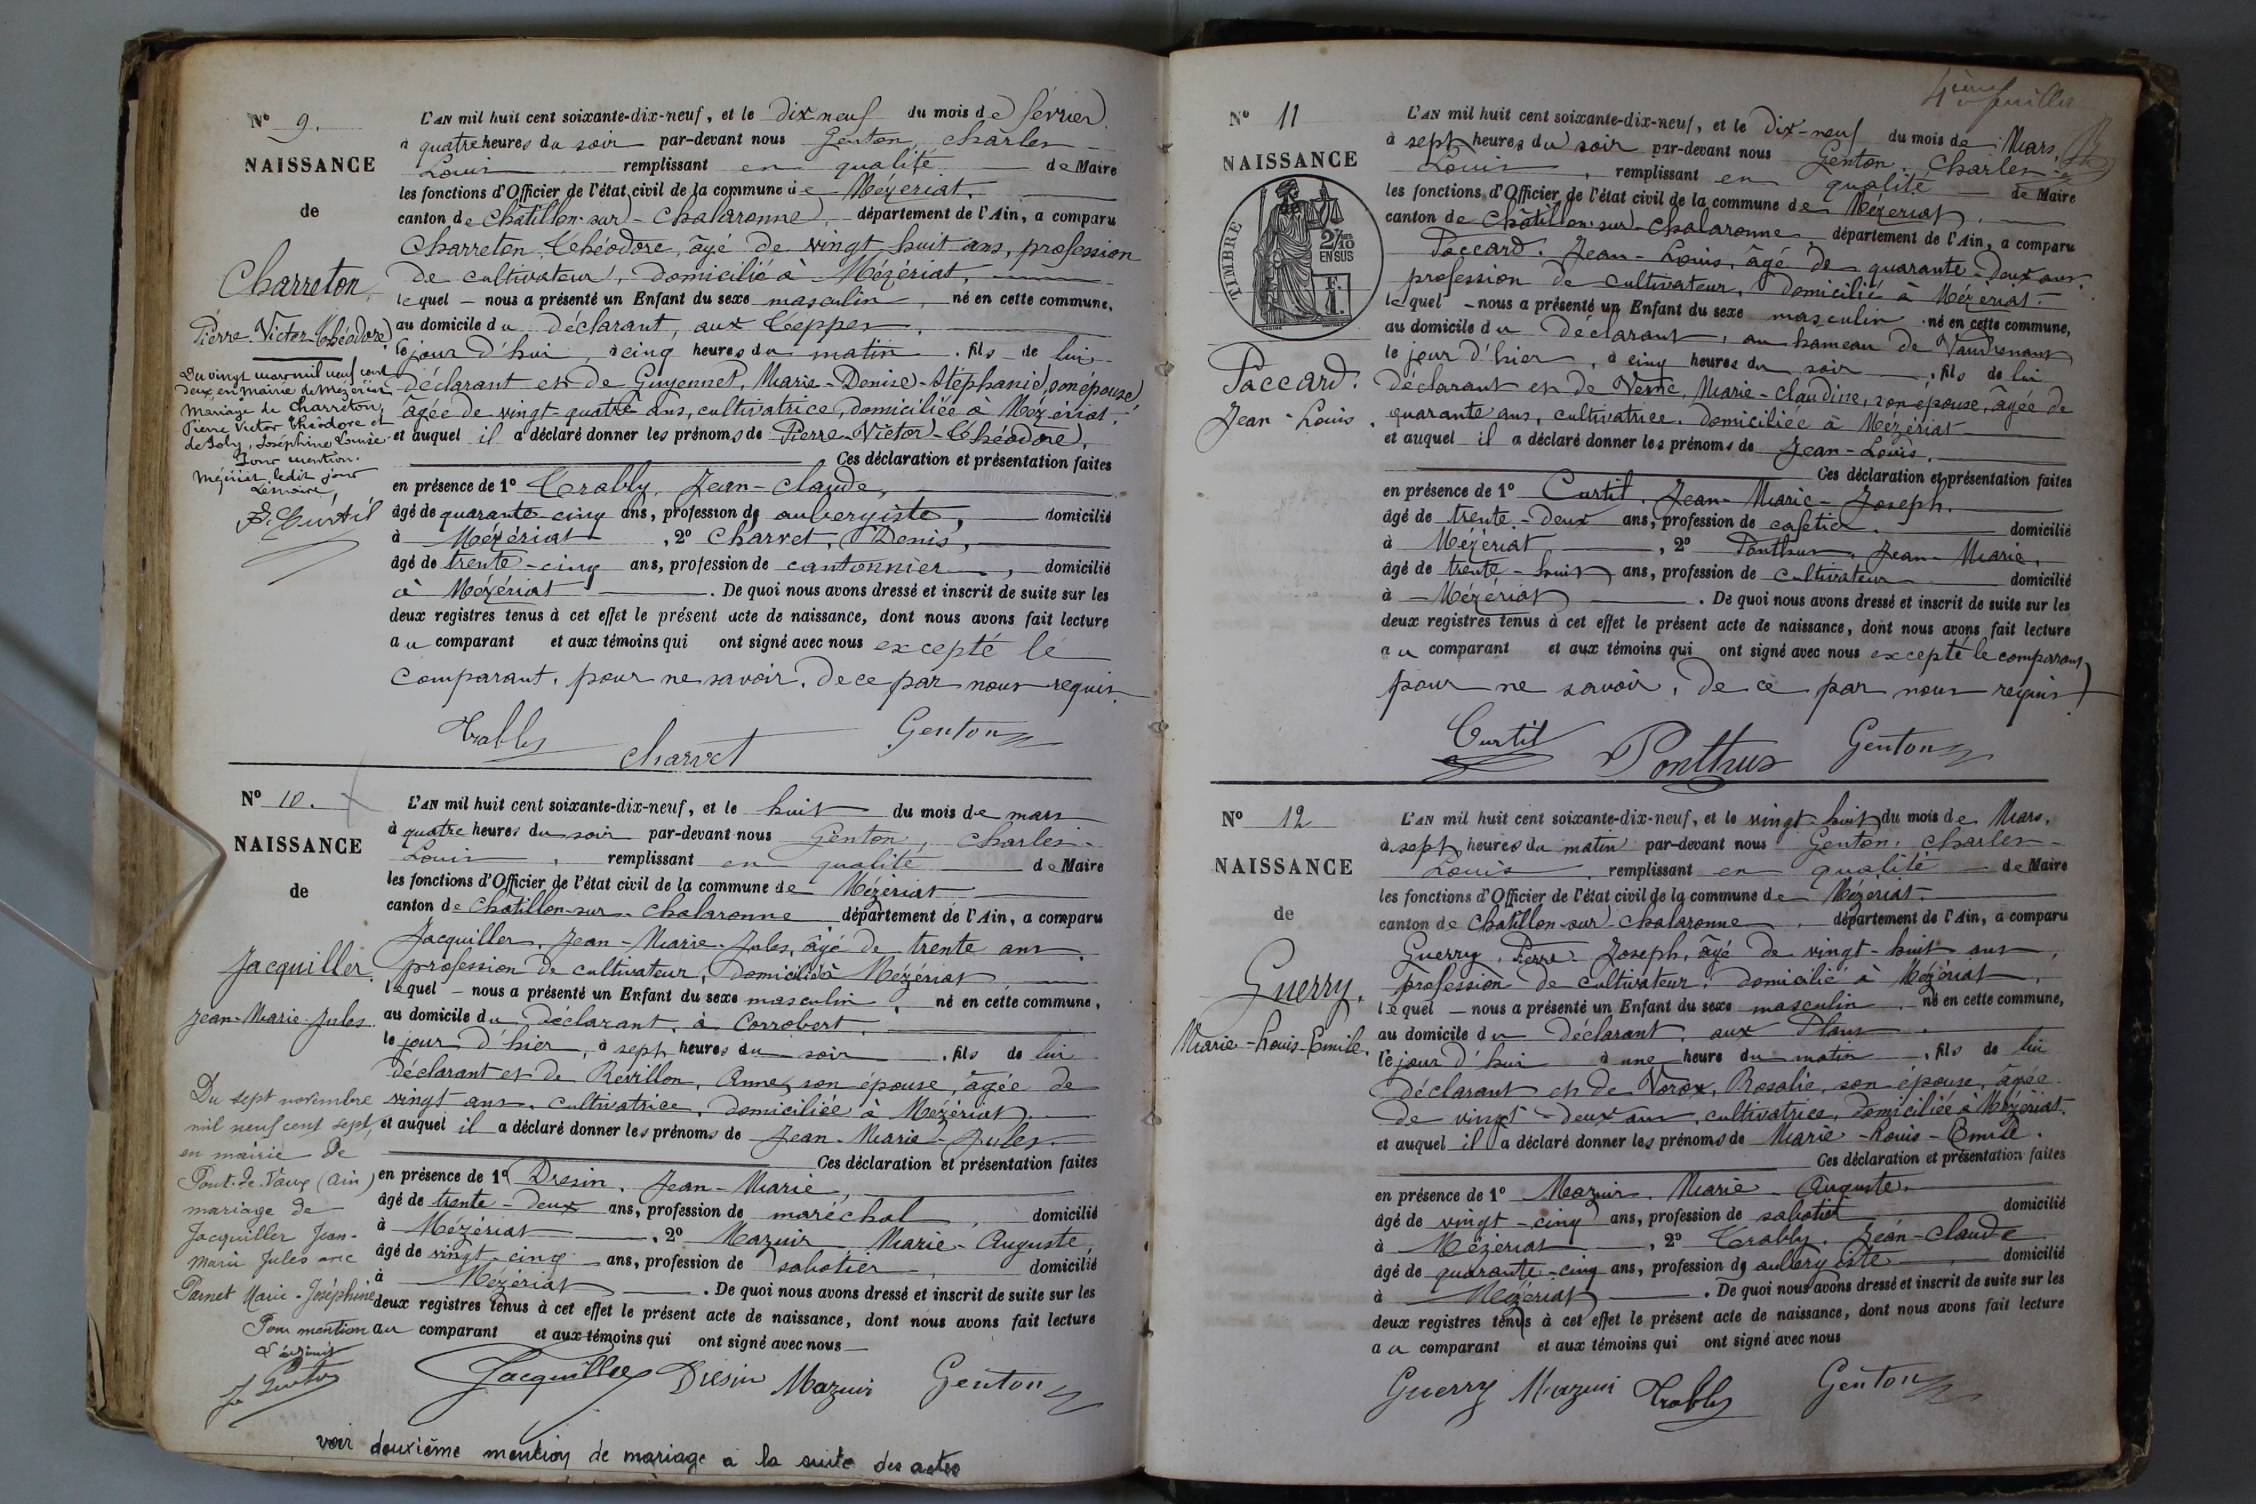 Nº 9.
NAISSANCE
de
Charreton,
Pierre-Victor-Théodore
Du vingt mars mil neuf cent
deux en Mairie de Mézériat
Mariage de Charreton,
Pierre Victor Théodore et
de Joly, Joséphine Louise
Pour mention.
Mézériat, ledit jour
Le maire,
Curtil
L'AN mil huit cent soixante-dix-neuf, et le dix neuf du mois de février
à quatre heures du soir par-devant nous Genton, Charles-
Louis remplissant en qualité de Maire
les fonctions d'Officier de l'état civil de la commune de Mézériat,
canton de Châtillon-sur-Chalaronne, département de l'Ain, a comparu
Charreton, Théodore, âgé de vingt huit ans, profession
de cultivateur, domicilié à Mézériat,
lequel nous a présenté un Enfant du sexe masculin, né en cette commune,
au domicile du déclarant, aux Teppes,
le jour d'hui, à cinq heures du matin. fils de lui
déclarant et de Guyennet, Marie-Denise-Stéphanie, son épouse,
âgée de vingt-quatre ans, cultivatrice, domiciliée à Mézériat.
et auquel il a déclaré donner les prénoms de Pierre-Victor-Théodore.
Ces déclaration et présentation faites
en présence de 1º Trably, Jean-Claude,
âgé de quarante-cinq ans, profession de aubergiste, domicilié
à Mézériat, 2º Charvet, Denis,
âgé de trente-cinq ans, profession de cantonnier, domicilié
à Mézériat. De quoi nous avons dressé et inscrit de suite sur les
deux registres tenus à cet effet le présent acte de naissance, dont nous avons fait lecture
au comparant et aux témoins qui ont signé avec nous excepté le
comparant, pour ne savoir, de ce par nous requis.
Trably Charvet Genton
Nº 10.
NAISSANCE
de
Jacquiller,
Jean-Marie-Jules.
Du sept novembre
mil neuf cent sept,
en mairie de
Pont-de-Vaux (Ain)
mariage de
Jacquiller Jean-
Marie Jules avec
Pernet Marie-Joséphine
Pour mention
L'AN mil huit cent soixante-dix-neuf, et le huit du mois de mars
à quatre heures du soir par-devant nous Genton, Charles-
Louis, remplissant en qualité de Maire
les fonctions d'Officier de l'état civil de la commune de Mézériat
canton de Châtillon-sur-Chalaronne, département de l'Ain, a comparu
Jacquiller, Jean-Marie-Jules, âgé de trente ans,
profession de cultivateur, domicilié à Mézériat,
lequel nous a présenté un Enfant du sexe masculin, né en cette commune,
au domicile du déclarant, à Corrobert,
le jour d'hier, à sept heures du soir, fils de lui
déclarant et de Revillon, Anne, son épouse, âgée de
vingt ans, cultivatrice, domiciliée à Mézériat.
et auquel il a déclaré donner les prénoms de Jean-Marie-Jules.
Ces déclaration et présentation faites
en présence de 1º Dresin, Jean-Marie,
âgé de trente-deux ans, profession de maréchal, domicilié
à Mézériat, 2º Mazuir Marie-Auguste,
âgé de vingt-cinq ans, profession de sabotier, domicilié
à Mézériat. De quoi nous avons dressé et inscrit de suite sur les
deux registres tenus à cet effet le présent acte de naissance, dont nous avons fait lecture
au comparant et aux témoins qui ont signé avec nous
Jacquiller Dresin Mazuir Genton
voir deuxième mention de mariage à la suite des actes
4ième feuillet
Nº 11
NAISSANCE
de
TIMBRE
2/10
EN SUS
F.
1.
Paccard.
Jean-Louis.
L'AN mil huit cent soixante-dix-neuf, et le dix-neuf du mois de Mars,
à sept heures du soir par-devant nous Genton, Charles-
Louis, remplissant en qualité de Maire
les fonctions d'Officier de l'état civil de la commune de Mézériat,
canton de Châtillon-sur-Chalaronne département de l'Ain, a comparu
Paccard, Jean-Louis, âgé de quarante-deux ans,
profession de cultivateur, domicilié à Mézériat.
lequel nous a présenté un Enfant du sexe masculin né en cette commune,
au domicile du déclarant, au hameau de Vaudrenant
le jour d'hier, à cinq heures du soir, fils de lui
déclarant et de Verne, Marie-Claudine, son épouse, âgée de
quarante ans, cultivatrice, domiciliée à Mézériat
et auquel il a déclaré donner les prénoms de Jean-Louis.
Ces déclaration et présentation faites
en présence de 1º Curtil, Jean-Marie-Joseph.
âgé de trente-deux ans, profession de cafetier. domicilié
à Mézériat, 2º Ponthus, Jean-Marie,
âgé de trente-huit ans, profession de cultivateur domicilié
à Mézériat. De quoi nous avons dressé et inscrit de suite sur les
deux registres tenus à cet effet le présent acte de naissance, dont nous avons fait lecture
au comparant et aux témoins qui ont signé avec nous excepté le comparant
pour ne savoir, de ce par nous requis
Curtil Ponthus Genton
Nº 12
NAISSANCE
de
Guerry,
Marie-Louis-Emile.
L'AN mil huit cent soixante-dix-neuf, et le vingt-huit du mois de Mars,
à sept heures du matin par-devant nous Genton, Charles-
Louis, remplissant en qualité de Maire
les fonctions d'Officier de l'état civil de la commune de Mézériat.
canton de Châtillon-sur-Chalaronne, département de l'Ain, a comparu
Guerry, Pierre-Joseph, âgé de vingt-huit ans,
profession de cultivateur, domicilié à Mézériat,
lequel nous a présenté un Enfant du sexe masculin, né en cette commune,
au domicile du déclarant, aux Plans.
le jour d'hui à une heure du matin, fils de lui
déclarant et de Vorox, Rosalie, son épouse, âgée
de vingt-deux ans, cultivatrice, domiciliée à Mézériat.
et auquel il a déclaré donner les prénoms de Marie-Louis-Emile.
Ces déclaration et présentation faites
en présence de 1º Mazuir, Marie-Auguste,
âgé de vingt-cinq ans, profession de sabotier domicilié
à Mézériat, 2º Trably, Jean-Claude
âgé de quarante-cinq ans, profession de aubergiste, domicilié
à Mézériat. De quoi nous avons dressé et inscrit de suite sur les
deux registres tenus à cet effet le présent acte de naissance, dont nous avons fait lecture
au comparant et aux témoins qui ont signé avec nous
Guerry Mazuir Trably Genton